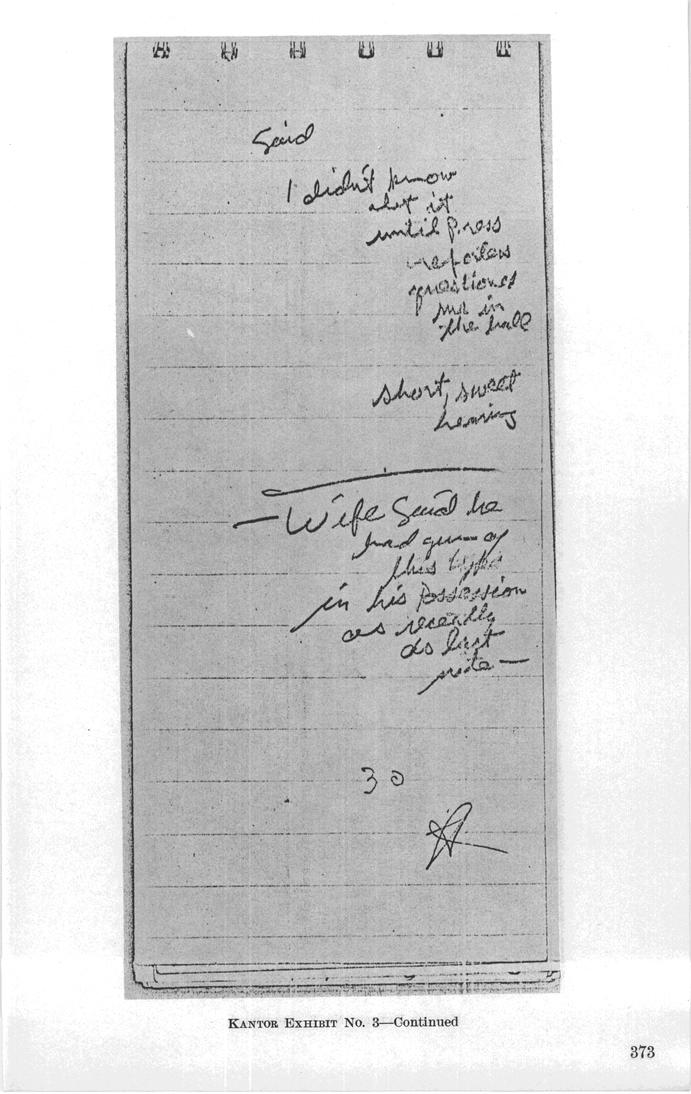 Said
I didn't know
abt it
until Press
reporters
questioned
me in
the hall
short, sweet
hearing
— Wife Said he
had gun of
this type
in his Possession
as recently
as last
nite —
30
KANTOR EXHIBIT No. 3—Continued
373